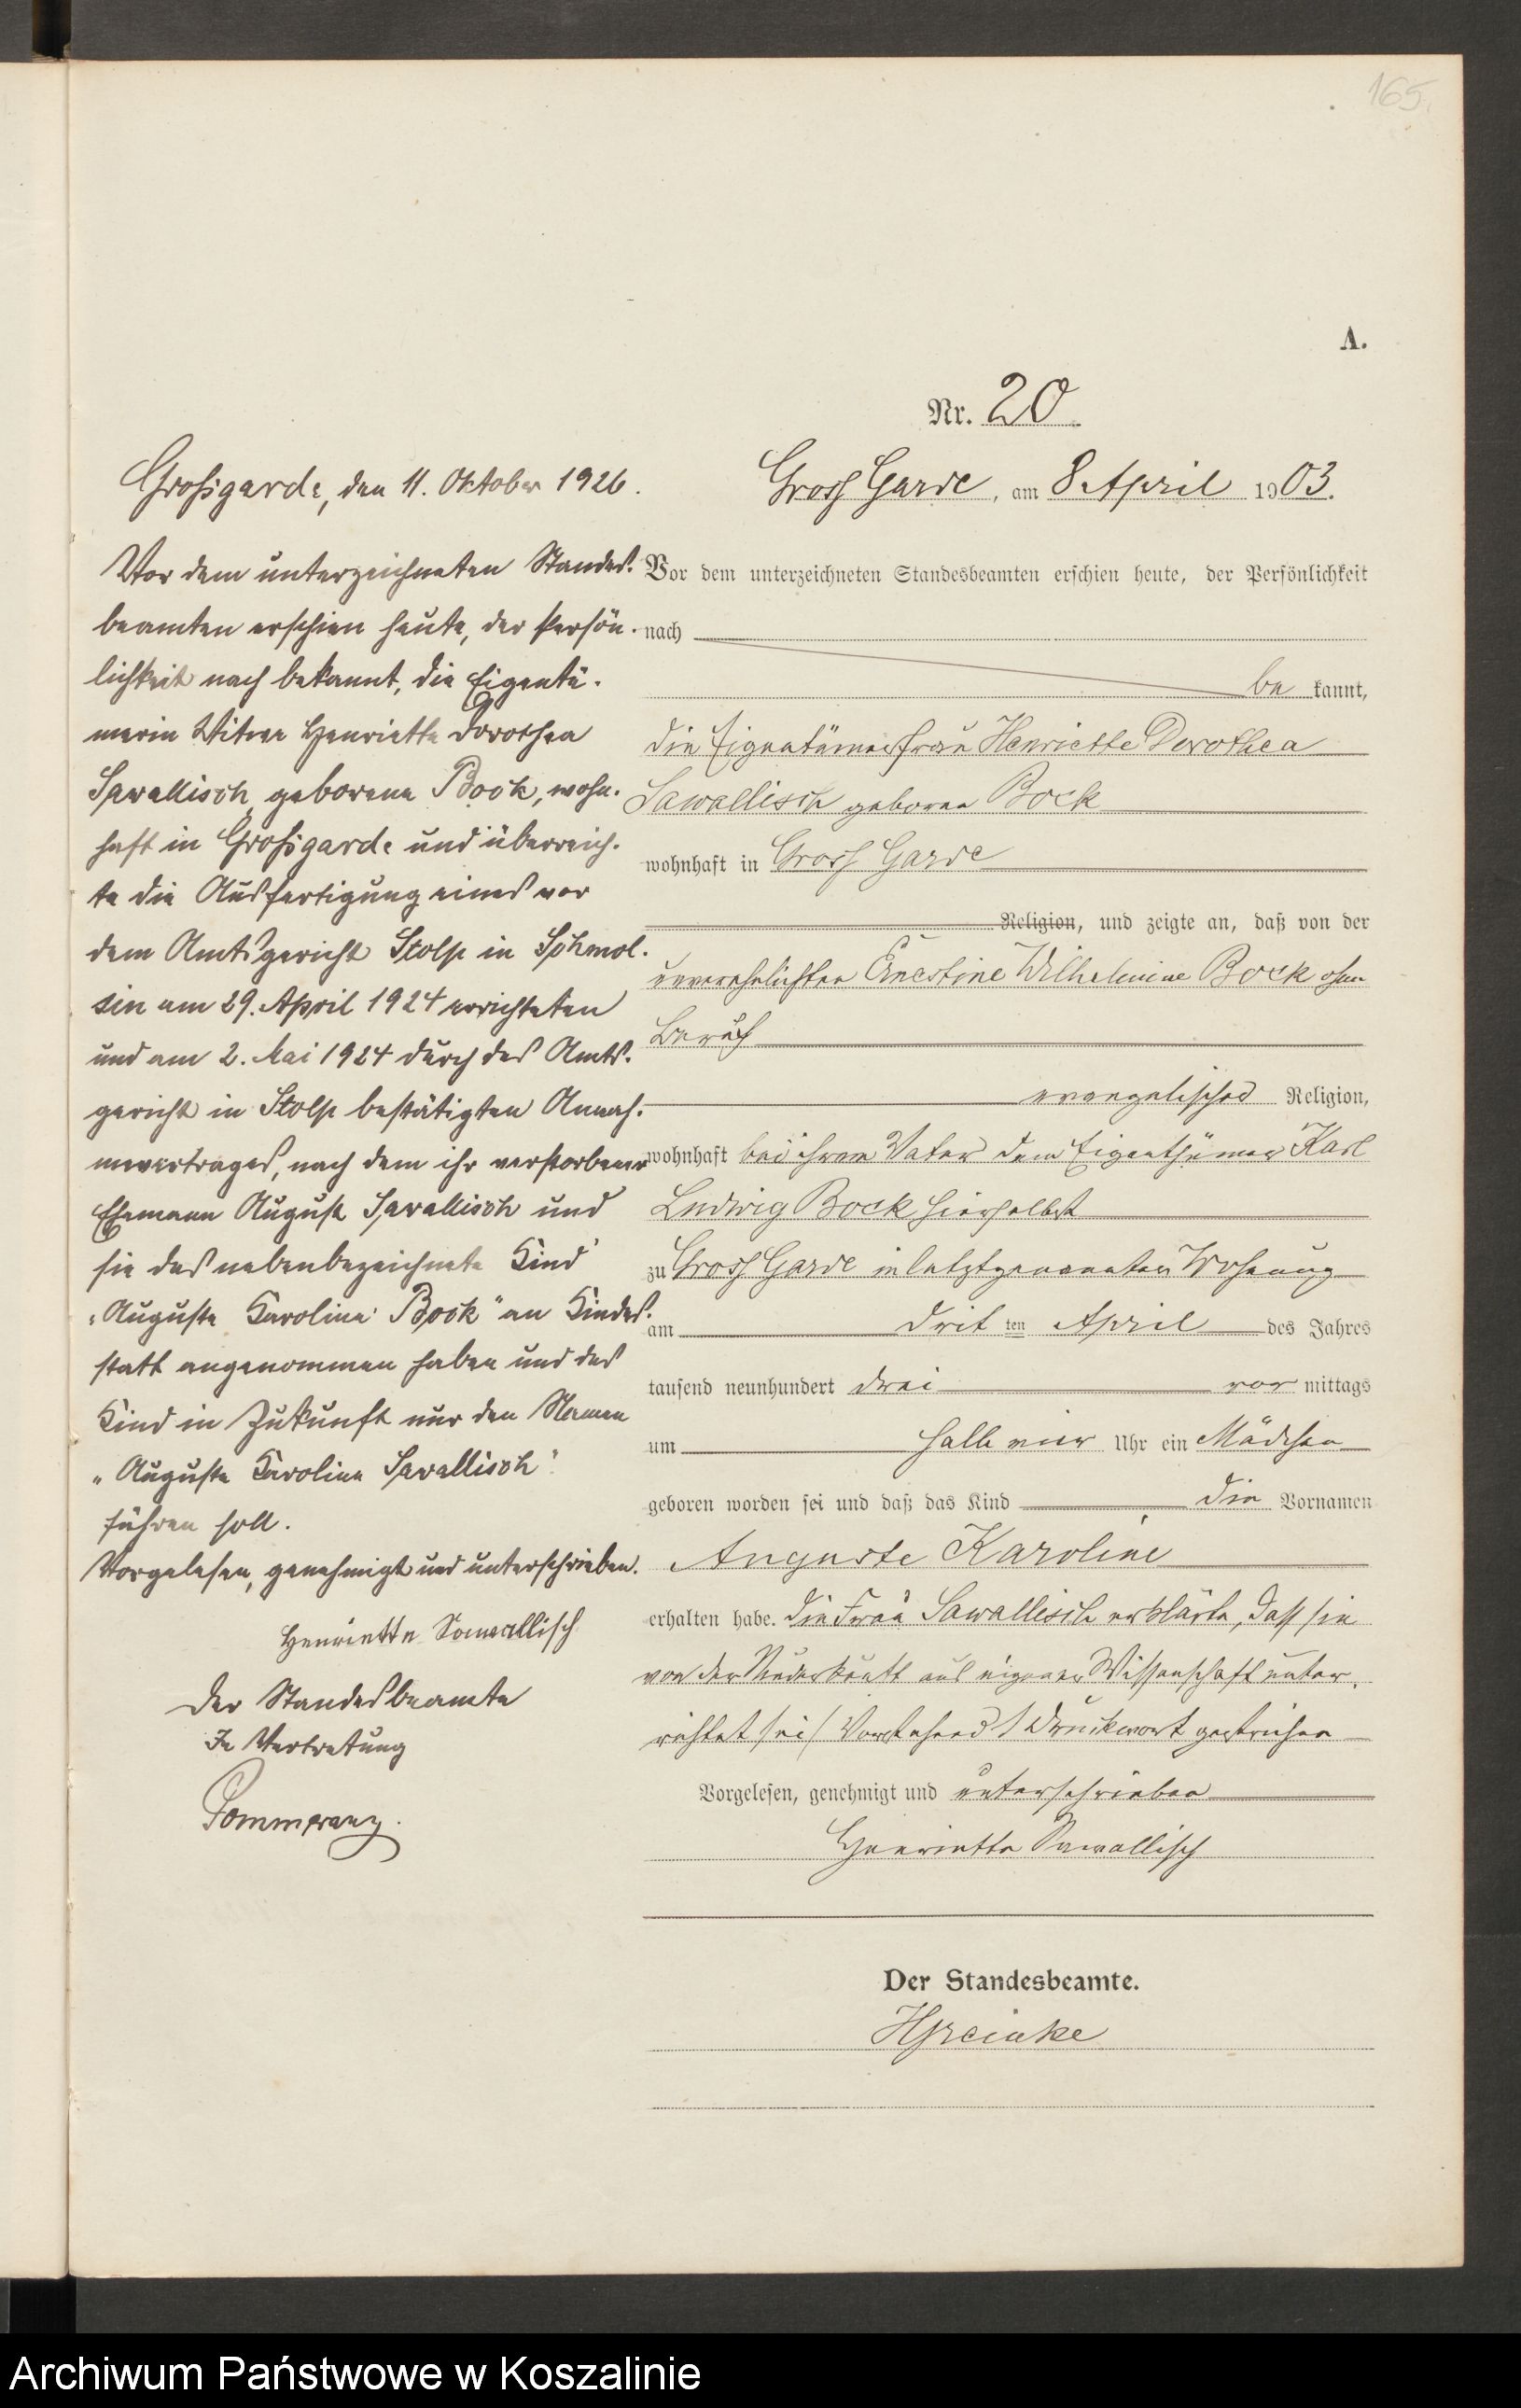 165.
A.
Nr. 20
Großgarde, den 11. Oktober 1926.
Vor dem unterzeichneten Standes-
beamten erschien heute, der Persön-
lichkeit nach bekannt, die Eigentü-
merin Witwe Henriette Dorothea
Sawallisch, geborene Bock, wohn-
haft in Großgarde und überreich-
te die Ausfertigung eines vor
dem Amtsgericht Stolp in Schmol-
sin am 29. April 1924 errichteten
und am 2. Mai 1924 durch das Amts-
gericht in Stolp bestätigten Annah-
mevertrages, nach dem ihr verstorbener
Ehemann August Sawallisch und
sie das nebenbezeichnete Kind
"Auguste Karoline Bock" an Kindes-
statt angenommen haben und das
Kind in Zukunft nur den Namen
"Auguste Karoline Sawallisch"
führen soll.
Vorgelesen, genehmigt und unterschrieben.
Henriette Sawallisch
Der Standesbeamte
In Vertretung
Pommerenz.
Gross Garde, am 8 April 1903.
Vor dem unterzeichneten Standesbeamten erschien heute, der Persönlichkeit
nach
be kannt,
die Eigentümerfrau Henriette Dorothea
Sawallisch geboren Bock
wohnhaft in Gross Garde
Religion, und zeigte an, daß von der
unverehelichten Ernestine Wilhelmine Bock ohne
Beruf
evangelischer Religion,
wohnhaft bei ihrem Vater dem Eigenthümer Karl
Ludwig Bock hierselbst
zu Gross Garde in letztgenannter Wohnung
am drit ten April des Jahres
tausend neunhundert drei vor mittags
um halb vier Uhr ein Mädchen
geboren worden sei und daß das Kind die Vornamen
Auguste Karoline
erhalten habe. Die Frau Sawallisch erklärte, dass sie
von der Niederkunft aus eigener Wissenschaft unter-
richtet sei / Vorstehend 1 Druckwort gestrichen
Vorgelesen, genehmigt und unterschrieben
Henriette Sawallisch
Der Standesbeamte.
HReinke
Archiwum Państwowe w Koszalinie